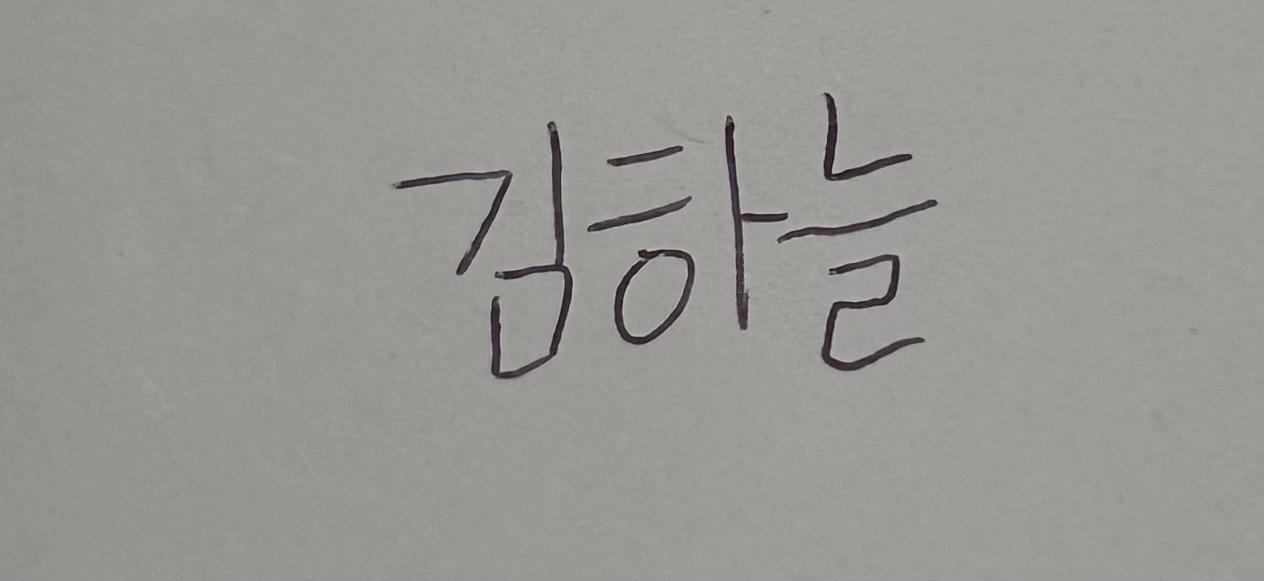 김하늘